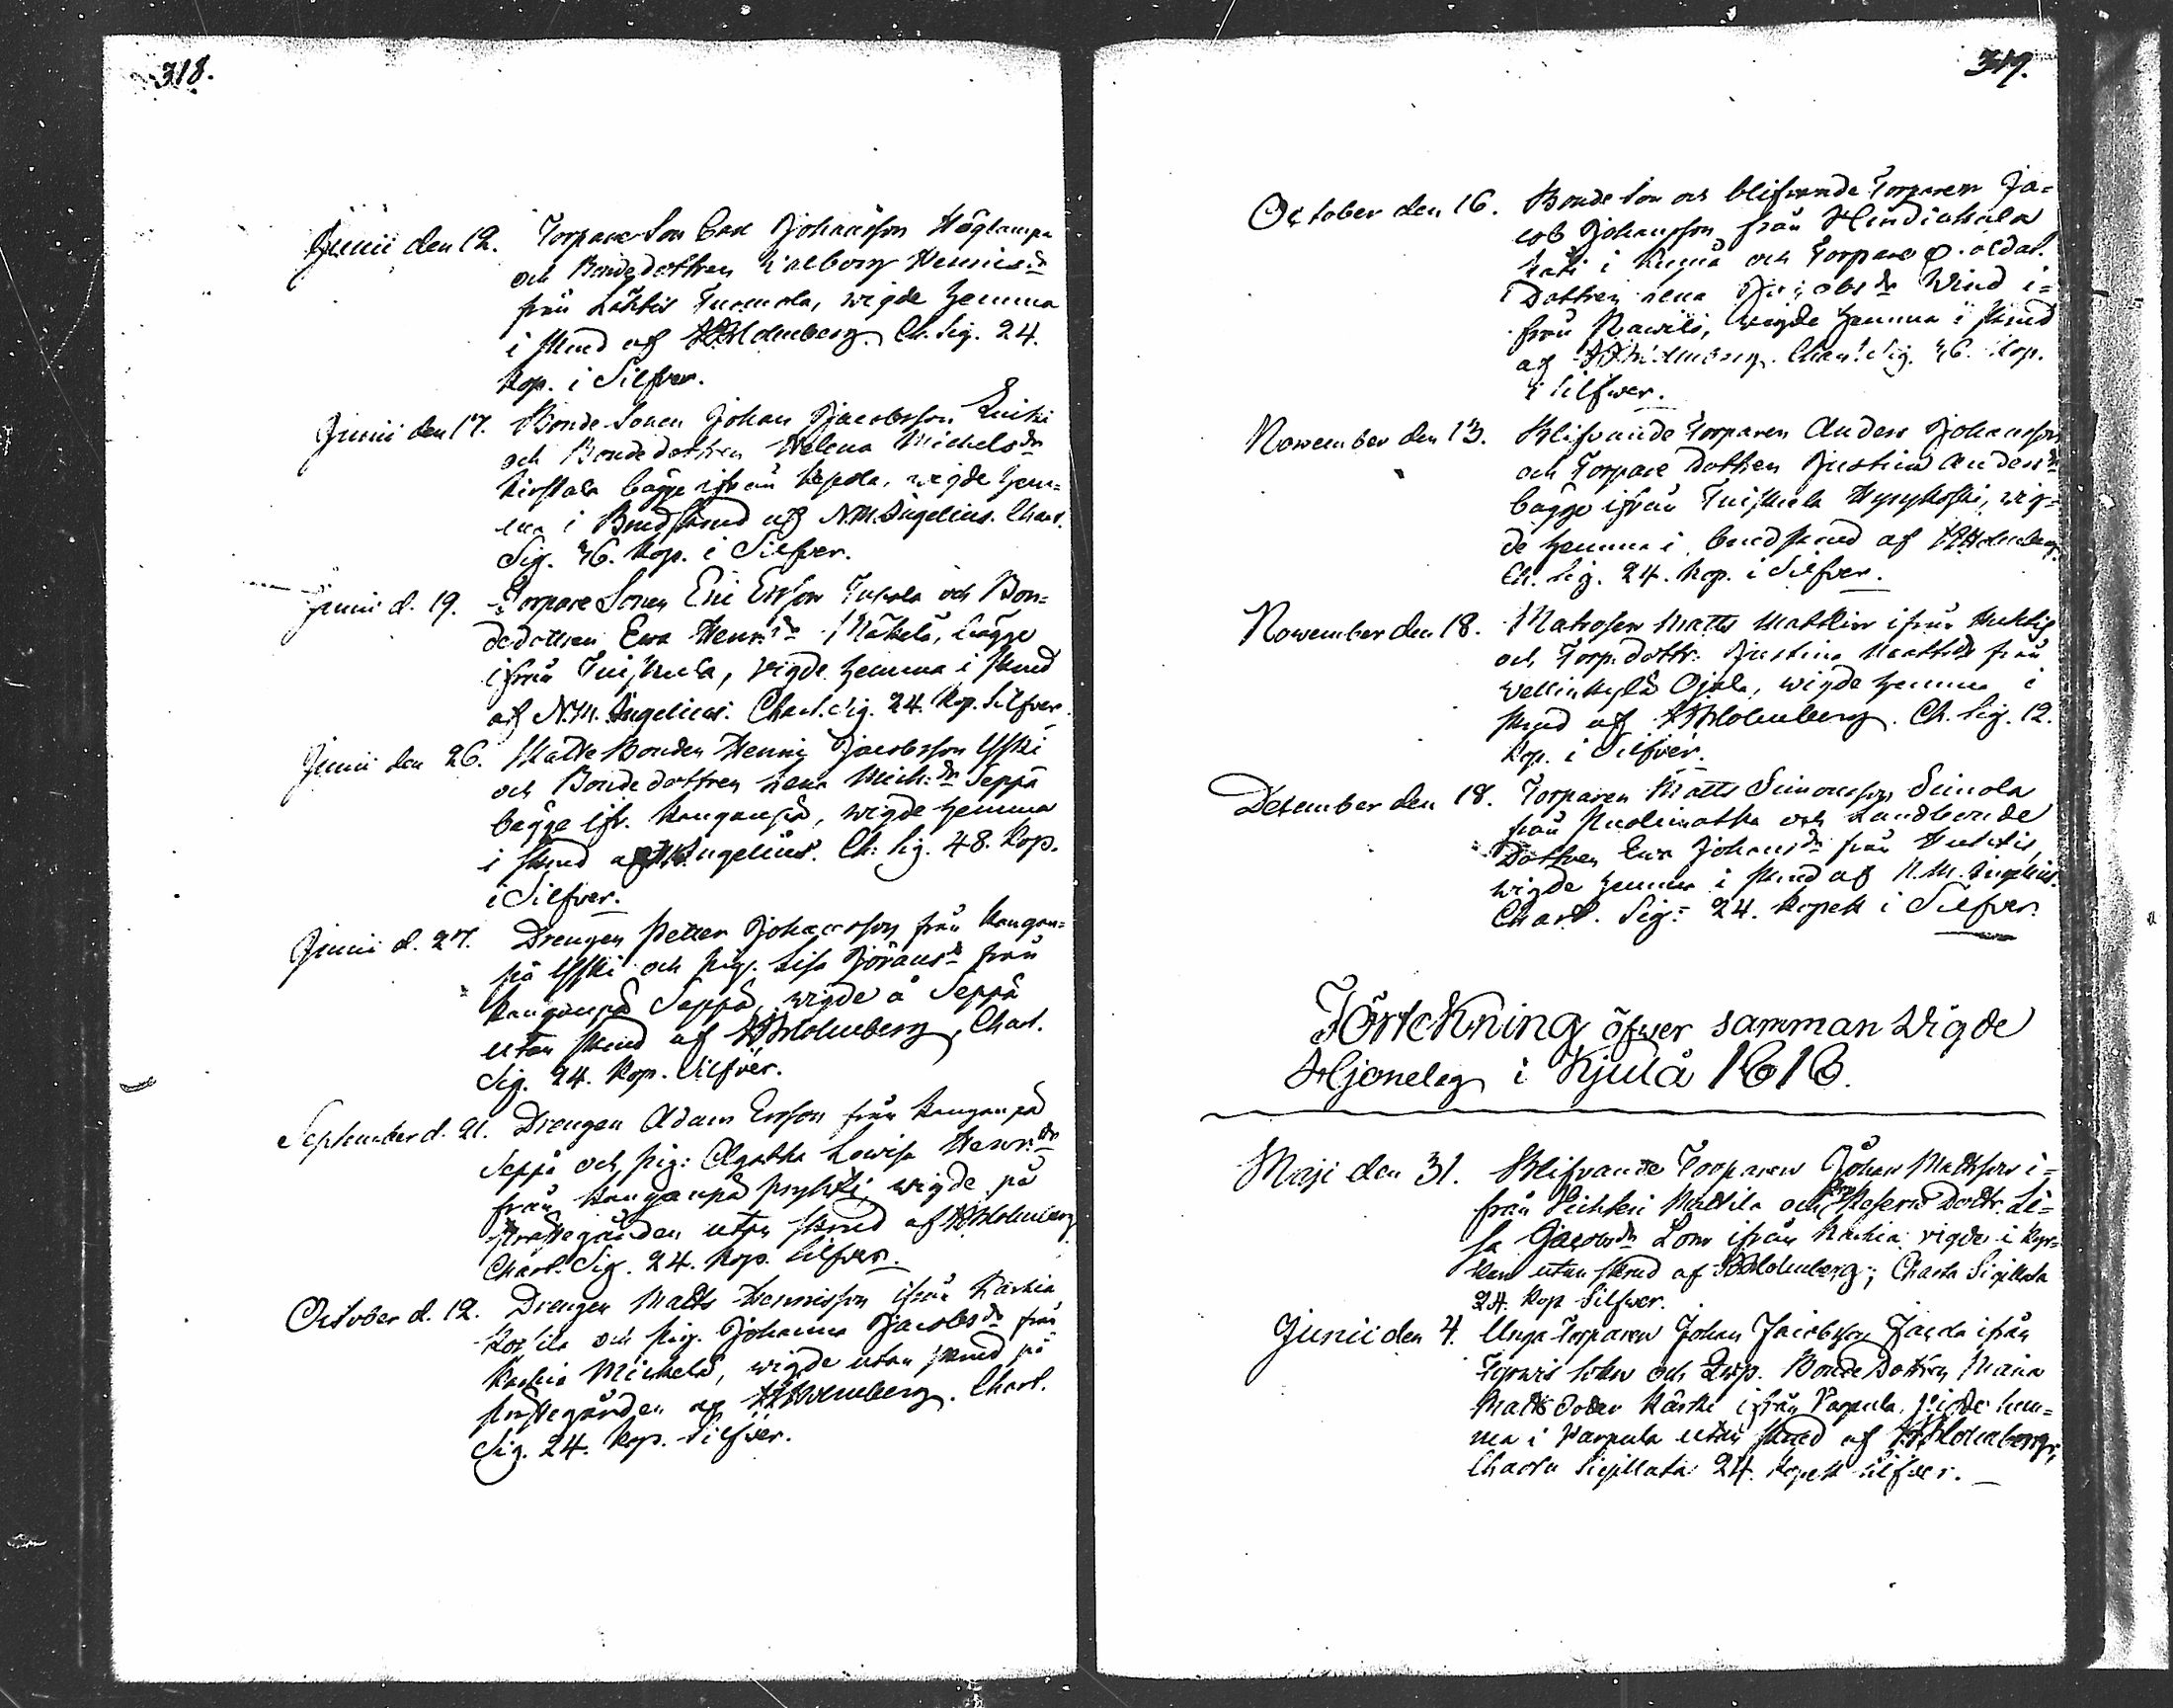 318.
Junii den 12. Torpare Son Carl Johansson Höglampi
och Bondedottren Walborg Henrics dr
från Lähtis Tuomola, wigde hemma
i skrud af Holmberg. Ch. Sig. 24.
Kop. i Silfver.
Junii den 17. Bonde Sonen Johan Jacobsson
och Bondedottren Helena Michels dr
bägge ifrån Kepola, wigde hem=
ma i Brudskrud af N.M. Ingelius. Chart.
Sig. 46. Kop. i Silfver.
Junii d. 19. Torpare Sonen Eric Ersson Tupala och Bon=
dedottren Ewa Henr: dr Mäkelä, bägge
ifrån Tuiskula, vigde hemma i skrud
af N.M. Ingelius. Chart. Sig. 24. Kop. Silfver.
Junii den 26. Bonden Henric Jacobsson Yski
och Bondedottren Lena Mich: dr Seppä
bägge ifr. Kanganpä, wigde hemma
i skrud af Ingelius. Ch. Sig. 48. Kop.
i Silfver.
Junii d. 27. Drengen Petter Johansson från Kangan=
pä Yski och Pig. Lisa Jörans dr från
Kanganpä Seppä, wigde å Seppä
utan skrud af Holmberg, Chart.
Sig. 24. Kop. Silfver.
September d. 21. Drengen Adam Ersson från Kanganpä
Seppä och Pig: Agatha Lowisa Henr: dr
från Kanganpä wigde på
Prestegården utan skrud af Holmberg
Chart. Sig. 24. Kop. Silfver.
October d. 12. Drengen Matts Henricsson ifrån Karhia
och Pig. Johanna Jacobs dr från
Karhia Mickelä, wigde utan skrud på
Prestegården af Holmberg. Chart.
Sig. 24. Kop. Silfver.
319.
October den 16. Bonde Son och blifvande Torparen Ja=
cob Johansson från
i och Torpare
Dottren Lena Jacobs dr Wind i=
från wigde hemma i skrud
af Holmberg. Chart. Sig. 46. Kop.
i Silfwer.
November den 13. Blifvande Torparen Anders Johansson
och Torpare dottren Justina Anders dr
bägge ifrån Tuiskula wig=
de hemma i brudskrud af Holmberg.
Ch. Sig. 24. Kop. i Silfver.
November den 18. Matrosen Matts Mattlin ifrån
och Torp. dottr: Justina Matts dr från
Vellinkylä Ojala, wigde hemma i
skrud af Holmberg. Ch. Sig. 12.
Kop. i Silfver.
December den 18. Torparen Matts Simonsson Simola
från och Landbonde
Dottren Ewa Johans dr från
wigde hemma i skrud af N.M. Ingelius.
Chart. Sig: 24. Kopek i Silfver.
Förtekning öfwer samman wigde
Hjonelag i Kjulå 1818.
Maji den 31. Blifvande Torparen Johan Mattsson i=
från Mattila och Dottr. Li=
sa Jacobs dr Lom ifrån Karhia vigde i Kyr=
kan utan skrud af Holmberg; Charta Sigillata
24. Kop Silfwer.
Junii den 4. Unga Torparen Johan Jacobsson ifrån
och Torp. Bonde Dottren Maria
Matts Doter Kärki ifrån Varpula, vigde hem=
ma i Varpula utan skrud af Holmberg;
Charta Sigillata 24. Kopek Silfver.